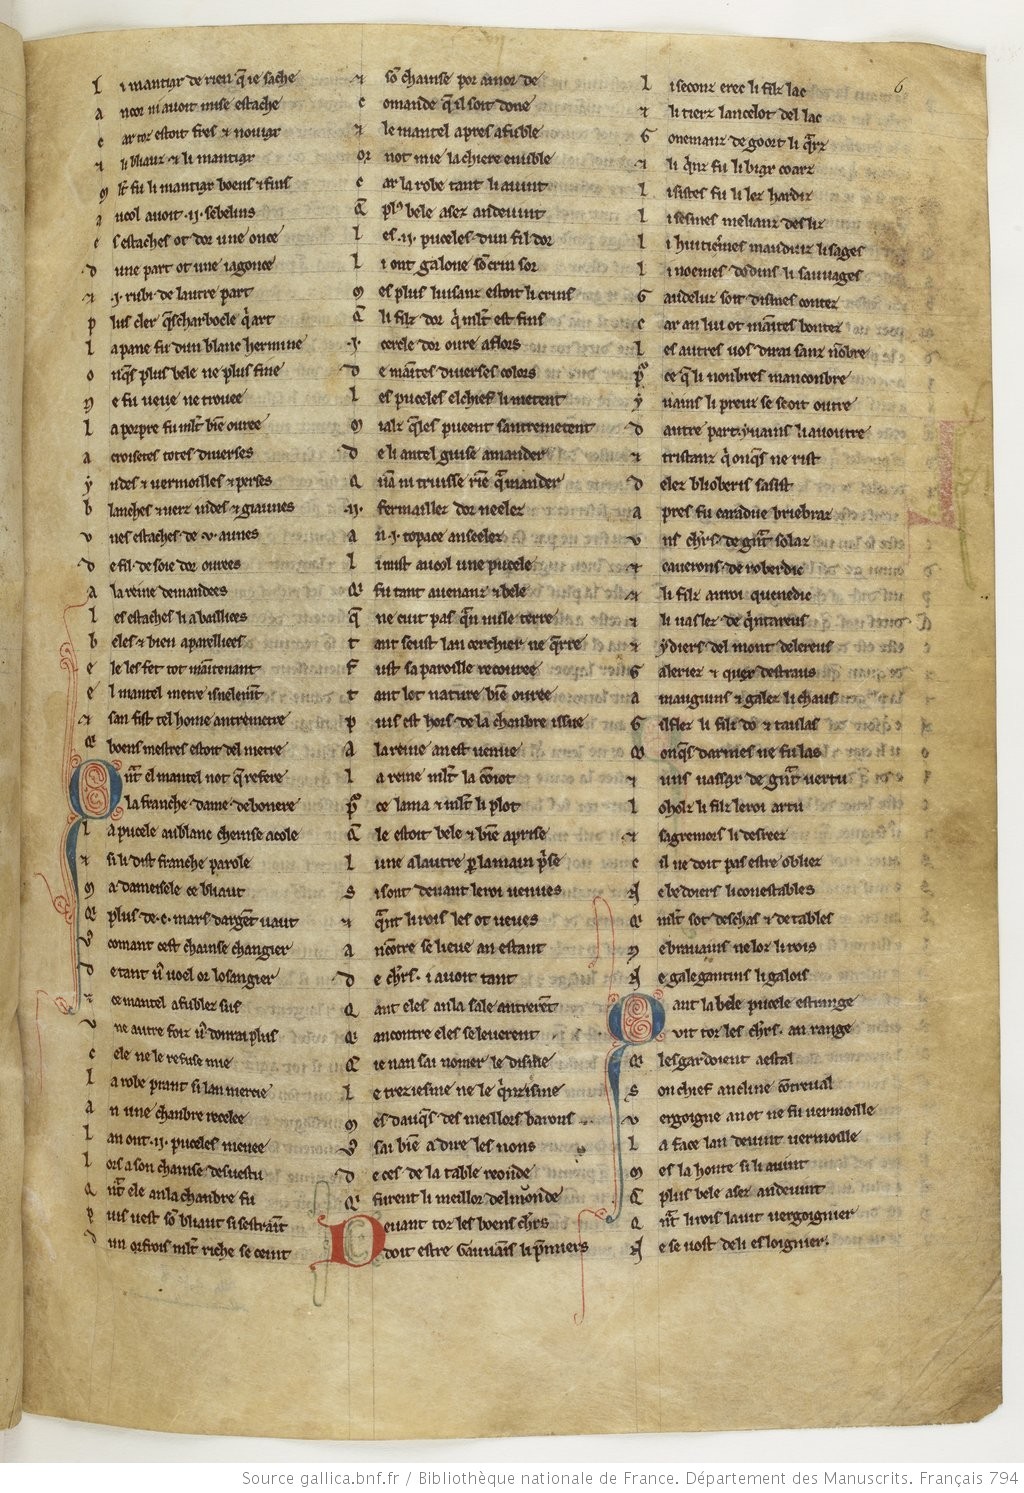 6
L i mantiax de rien q̃ ie sache
A ncor ni auoit mise estache
C ar tot estoit fres ⁊ nouiax
⁊ li bliauz ⁊ li mantiax
M lt̃ fu li mantiax boens ⁊ fins
A u col auoit .ii. sebelins
E s estaches ot dor une once
D une part ot une iagonce
⁊ .i. rubi de lautre part
P lus cler q̃ scharbocle q̃ art
L a pane fu dun blanc hermine
O nq̃s plus bele ne plus fine
N e fu ueue ne trouee
L a porpre fu mlt̃ biẽ ouree
A croisetes totes diuerses
Y ndes ⁊ uermoilles ⁊ perses
B lanches ⁊ uerz indes ⁊ giaunes
V nes estaches de .v. aunes
D e fil de soie dor ourees
A la reine demandees
L es estaches li a bailliees
B eles ⁊ bien aparelliees
E le les fet tot maintenant
E l mantel metre isnelemt̃
⁊ san fist tel home antremetre
Q̃ boens mestres estoit del metre
Q nt̃ el mantel not q̃ refere
L a franche dame debonere
L a pucele au blanc cheinse acole
⁊ si li dist franche parole
M a dameisele ce bliaut
Q̃ plus de .c. mars dargẽt uaut
V os comant cest chainse changier
D e tant u̾ uoel or losangier
⁊ ce mantel afublez sus
V ne autre foiz u̾ donrai plus
C ele ne le refuse mie
L a robe prant si lan mercie
A n une chanbre recelee
L an ont .ii. puceles menee
L ors a son chainse desuestu
Q nt̃ ele an la chanbre fu
P uis uest sõ bliaut si sestraint
D un orfrois mlt̃ riche se ceint
⁊ sõ chainse por amor de
C omande q̃ il soit done
⁊ le mantel apres afuble
Or not mie la chiere enuble
C ar la robe tant li auint
Q̃ pl᷒ bele asez an deuint
L es .ii. puceles dun fil dor
L i ont galone sõ crin sor
M es plus luisanz estoit li crins
Q̃ li filz dor q̾ mlt̃ est fins
.I. cercle dor oure a flors
D e maĩtes diuerses colors
L es puceles el chief li metent
M ialz q̃les pueent santremetent
D e li an tel guise amander
Q nã ni truisse riẽ q̃ mander
.II. fermaillez dor neelez
A n .i. topace anseelez
L i mist au col une pucele
Q̾ fu tant auenanz ⁊ bele
Q ne cuit pas q̃ an nule terre
T ant seust lan cerchier ne q̃rre
F ust sa paroille recouree
T ant lot nature biẽ ouree
P uis est hors de la chanbre issue
A la reine an est uenue
L a reine mlt̃ la cõiot
P̾ ce lama ⁊ mlt̃ li plot
Q̃ le estoit bele ⁊ biẽ aprise
L une a lautre p̱ la main p̾se
S i sont deuant le roi uenues
⁊ q̃nt li rois les ot ueues
A ncõtre se lieue an estant
D e chl̾rs i auoit tant
Q ant eles an la sale antrerẽt
Q̾ ancontre eles se leuerent
Q̃ ie nan sai nomer le disisme
L e treziesme ne le q̾nzisme
M es dauq̃s des meillors barons
V os sai biẽ a dire les nons
D e ces de la table reonde
Q̾ furent li meillor del mõnde
D euant toz les boens chl̾rs
doit estre Gauuaĩs li p̾miers
L i seconz erec li filz lac
⁊ li tierz lancelot del lac
G onemanz de goort li q̾rz
⁊ li q̾nz fu li biax coarz
L i sistes fu li lez hardiz
L i sesmes melianz des liz
L i huitiẽmes mauduiz li sages
L i noemes dodins li sauuages
G audeluz soit dismes contez
C ar an lui ot maĩtes bontez
L es autres uos dirai sanz nõbre
P̾ ce q̃ li nonbres manconbre
Y uains li preuz se seoit outre
D autre part yuains li auoutre
⁊ tristanz q̾ onq̃s ne rist
D elez blioberis sasist
A pres fu caradue briebraz
V ns chl̾rs de gñt solaz
⁊ cauerons de roberdic
⁊ li filz au roi quenedic
⁊ li uaslez de q̾ntareus
⁊ ydiers del mont delereus
G aleriez ⁊ quex destraus
A mauguins ⁊ galez li chaus
G ilflez li filz do ⁊ taulas
Q̾ onq̃s darmes ne fu las
⁊ uns uassax de gñt uertu
L oholz li filz le roi artu
⁊ sagremors li desreez
C il ne doit pas estre obliez
N e bedoiers li conestables
Q̾ mlt̃ sot deschas ⁊ de tables
N e brauains ne loz li rois
N e galegantins li galois
Q ant la bele pucele estrange
Vit toz les chl̾rs an range
Q̾ lesgardoient a estal
S on chief ancline cõtreual
V ergoigne an ot ne fu meruoille
L a face lan deuint uermoille
M es la honte si li auint
Q̃ plus bele asez an deuint
Q nt̃ li rois la uit uergoignier
N e se uost de li esloignier.
Source gallica.bnf.fr / Bibliothèque nationale de France. Département des Manuscrits. Français 794